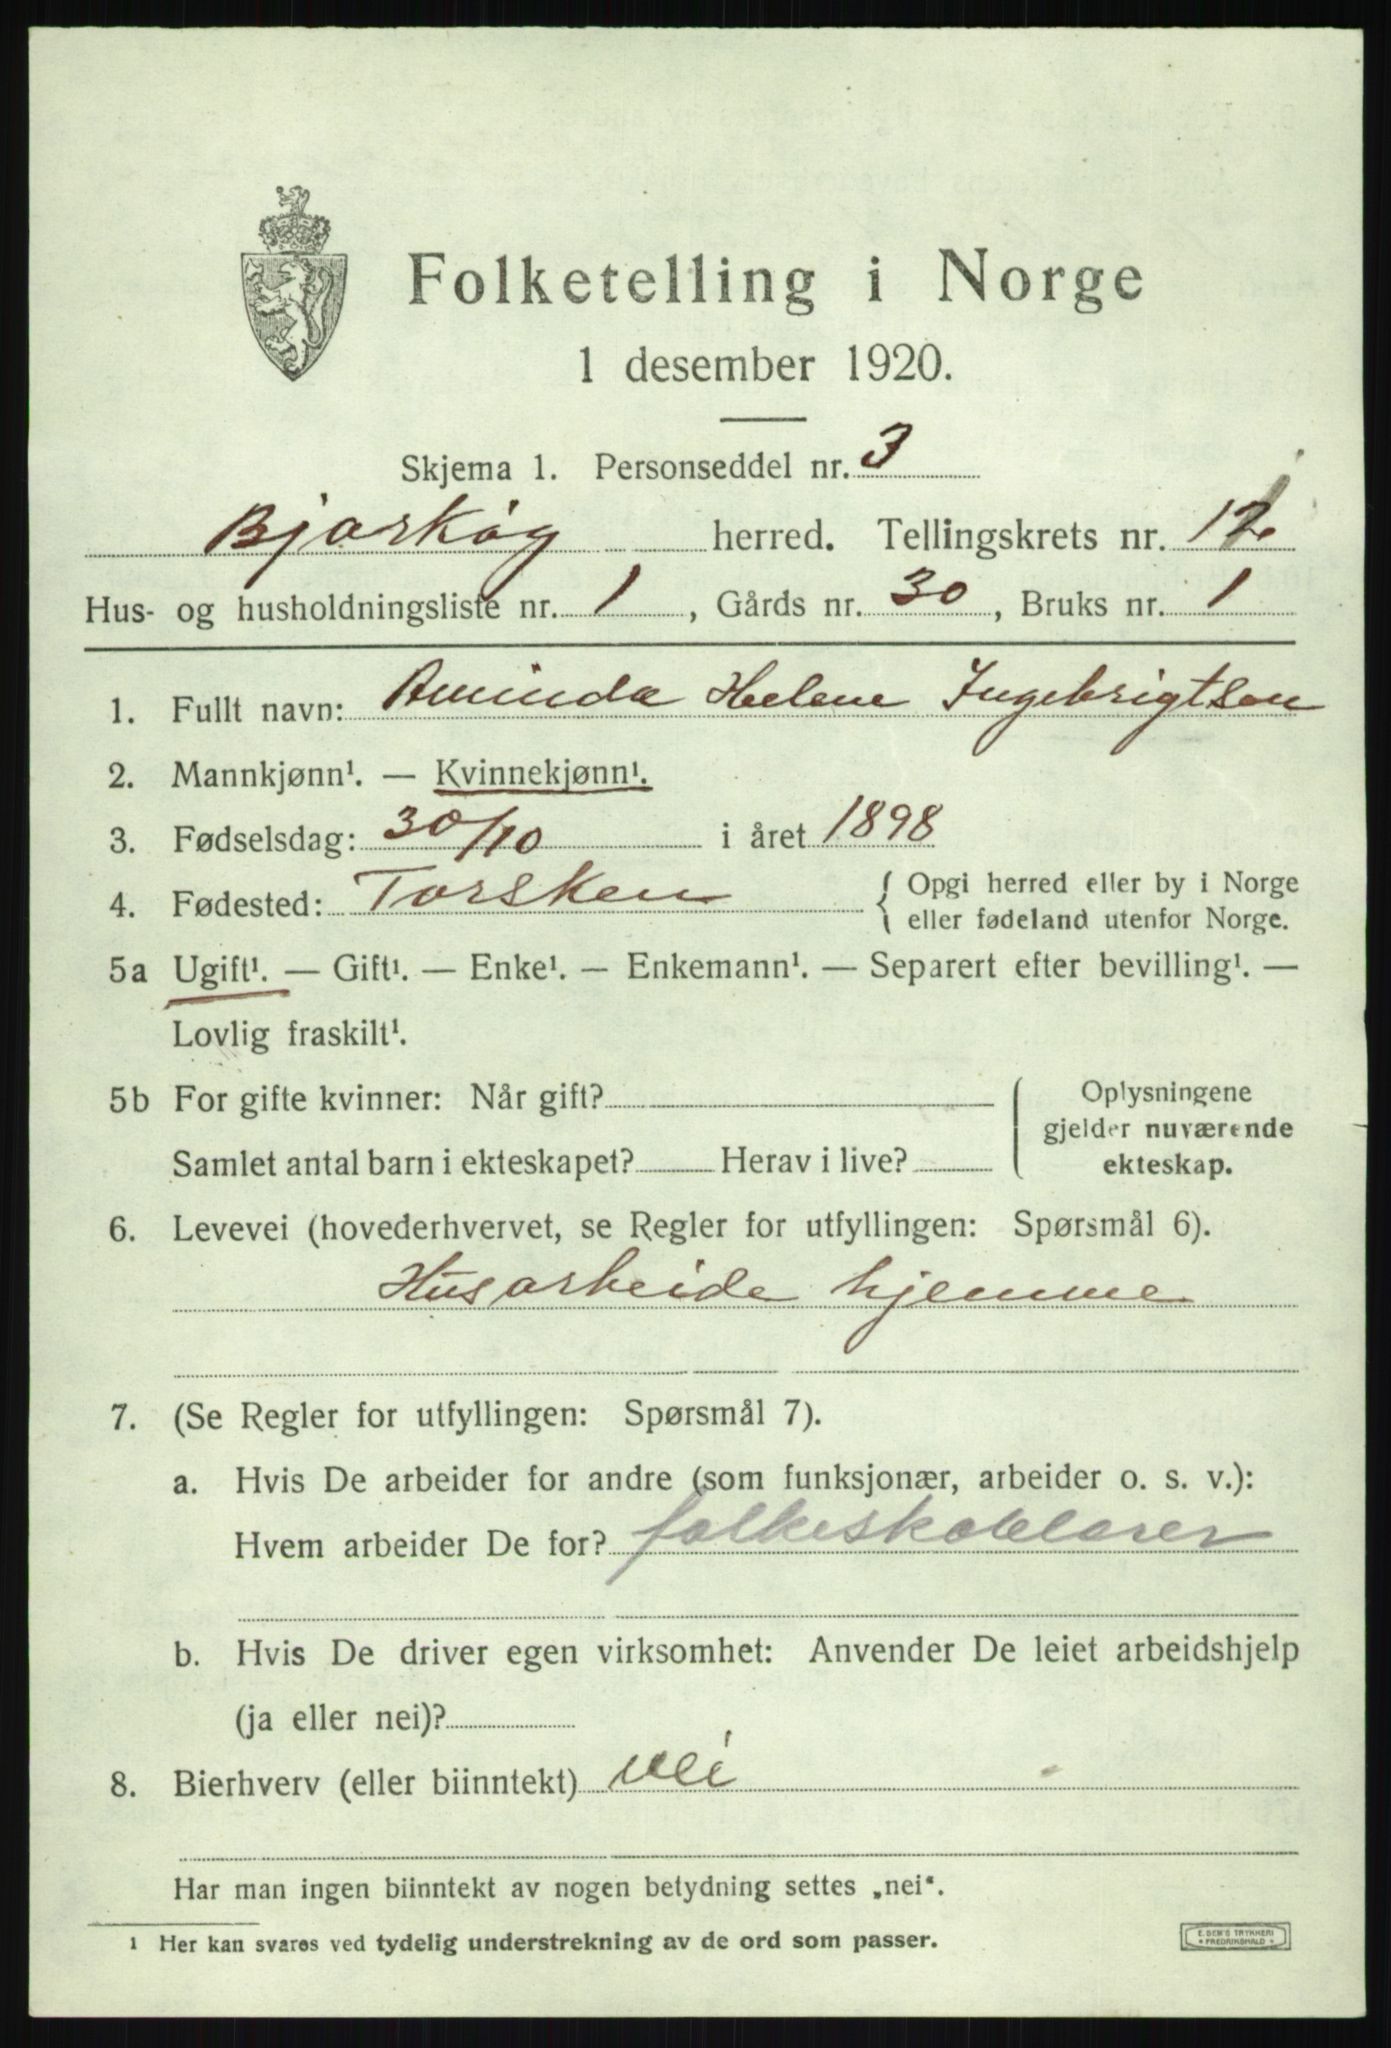 Folketelling i Norge
1 desember 1920.
Skjema 1. Personseddel nr. 3
Bjarkøy herred. Tellingskrets nr. 12
Hus- og husholdningsliste nr. 1, Gårds nr. 30, Bruks nr. 1
1. Fullt navn: Aminda Helene Ingebrigtsen
2. Mannkjønn¹. — Kvinnekjønn¹.
3. Fødselsdag: 30/10 i året 1898
4. Fødested: Torsken { Opgi herred eller by i Norge
eller fødeland utenfor Norge.
5a Ugift¹. — Gift¹. — Enke¹. — Enkemann¹. — Separert efter bevilling¹. —
Lovlig fraskilt¹.
5b For gifte kvinner: Når gift? Oplysningene
gjelder nuværende
Samlet antal barn i ekteskapet? Herav i live? ekteskap.
6. Levevei (hovederhvervet, se Regler for utfyllingen: Spørsmål 6).
Husarbeide hjemme
7. (Se Regler for utfyllingen: Spørsmål 7).
a. Hvis De arbeider for andre (som funksjonær, arbeider o. s. v.):
Hvem arbeider De for? folkeskolelærer
b. Hvis De driver egen virksomhet: Anvender De leiet arbeidshjelp
(ja eller nei)?
8. Bierhverv (eller biinntekt) nei
Har man ingen biinntekt av nogen betydning settes „nei“.
¹ Her kan svares ved tydelig understrekning av de ord som passer.
E. SEM'S TRYKKERI
FREDRIKSHALD